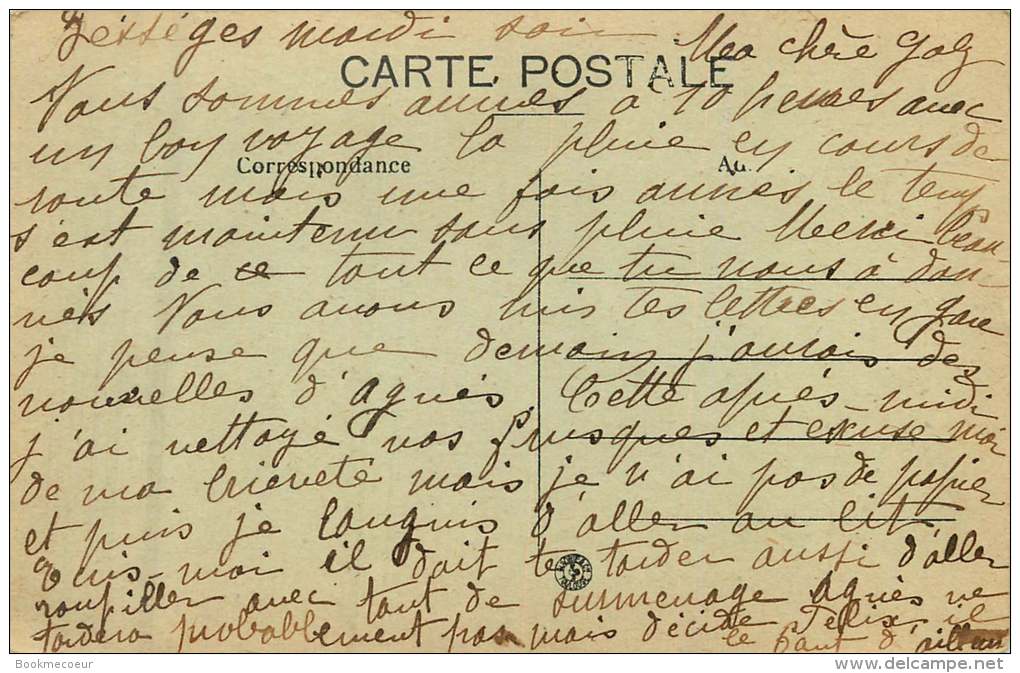 Bességes mardi soir Ma chère Gaby
CARTE POSTALE
Nous sommes arrivés a 10 heures avec
un bon voyage la pluie en cours de
Correspondance
route mais une fois arrivés le temps
s'est maintenu sans pluie Merci beau-
coup de ce tout ce que tu nous à don-
nés Nous avons mis tes lettres en gare
je pense que demain j'aurais des
nouvelles d'Agnès, Cette après-midi
j'ai nettoyé nos frusques et exuse moi
de ma brièveté mais je n'ai pas de papier
et puis je languis d'aller au lit
il doit te tarder aussi d'aller
roupiller avec tant de surmenage Agnès ne
tardera probablement pas mais décide Félix il
le faut d'ailleurs
Bookmecoeur
www.delcampe.net